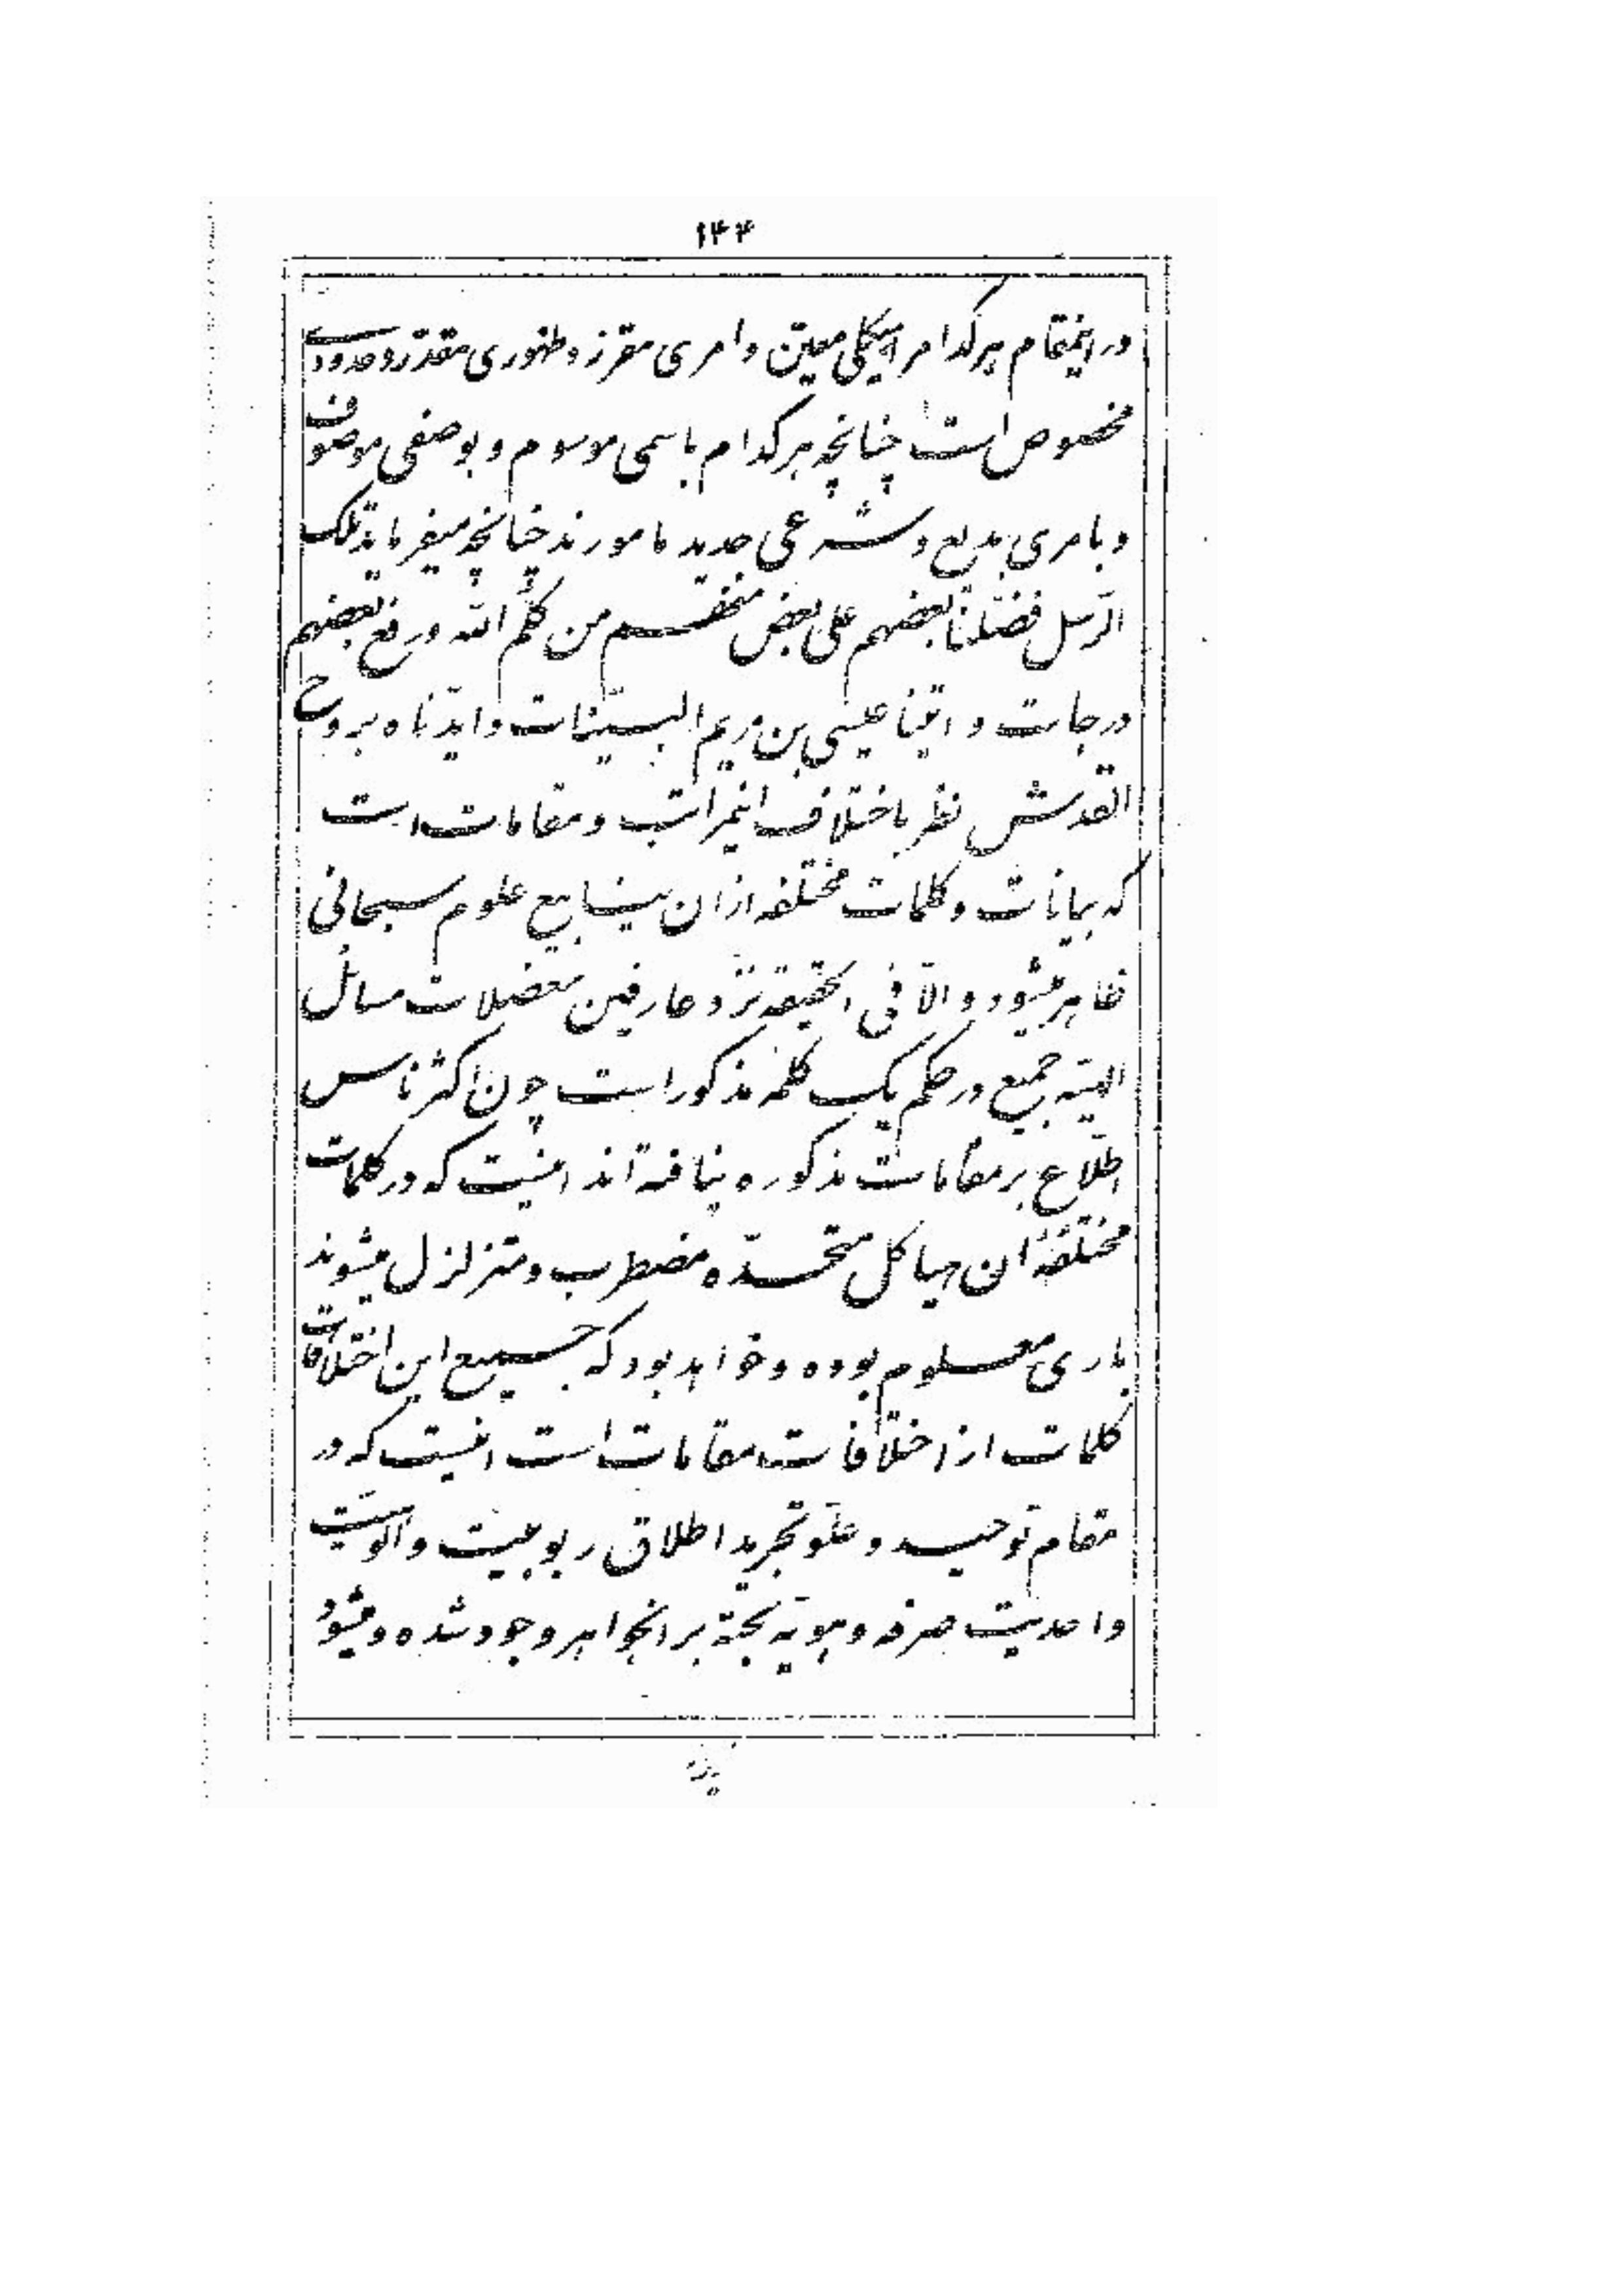 ۱۴۴
در اینمقام هر کدام را هیکلی معیّن و امری مقرّر و ظهوری مقدّر و حدودی
مخصوص است چنانچه هر کدام باسمی موسوم و بوصفی موصوف
و بامری بدیع و شرعی جدید مامورند چنانچه میفرماید تلک
الرّسل فضّلنا بعضهم علی بعض منهم من کلّم اللّه و رفع بعضهم
درجات و اتینا عیسی بن مریم البیّنات و ایّدناه بروح
القدس نظر باختلاف اینمراتب و مقامات است
که بیانات و کلمات مختلفه از ان ینابیع علوم سبحانی
ظاهر میشود و الّا فی الحقیقة نزد عارفین معضلات مسائل
الهیّه جمیع در حکم یک کلمه مذکور است چون اکثر ناس
اطّلاع بر مقامات مذکوره نیافته‌اند اینست که در کلمات
مختلفهٔ ان هیاکل متّحده مضطرب و متزلزل میشوند
باری معلوم بوده و خواهد بود که جمیع این اختلافات
کلمات از اختلافات مقامات است اینست که در
مقام توحید و علوّ تجرید اطلاق ربوبیت و الوهیّت
و احدیت صرفه و هویّه بحتة بر انجواهر وجود شده و میشود